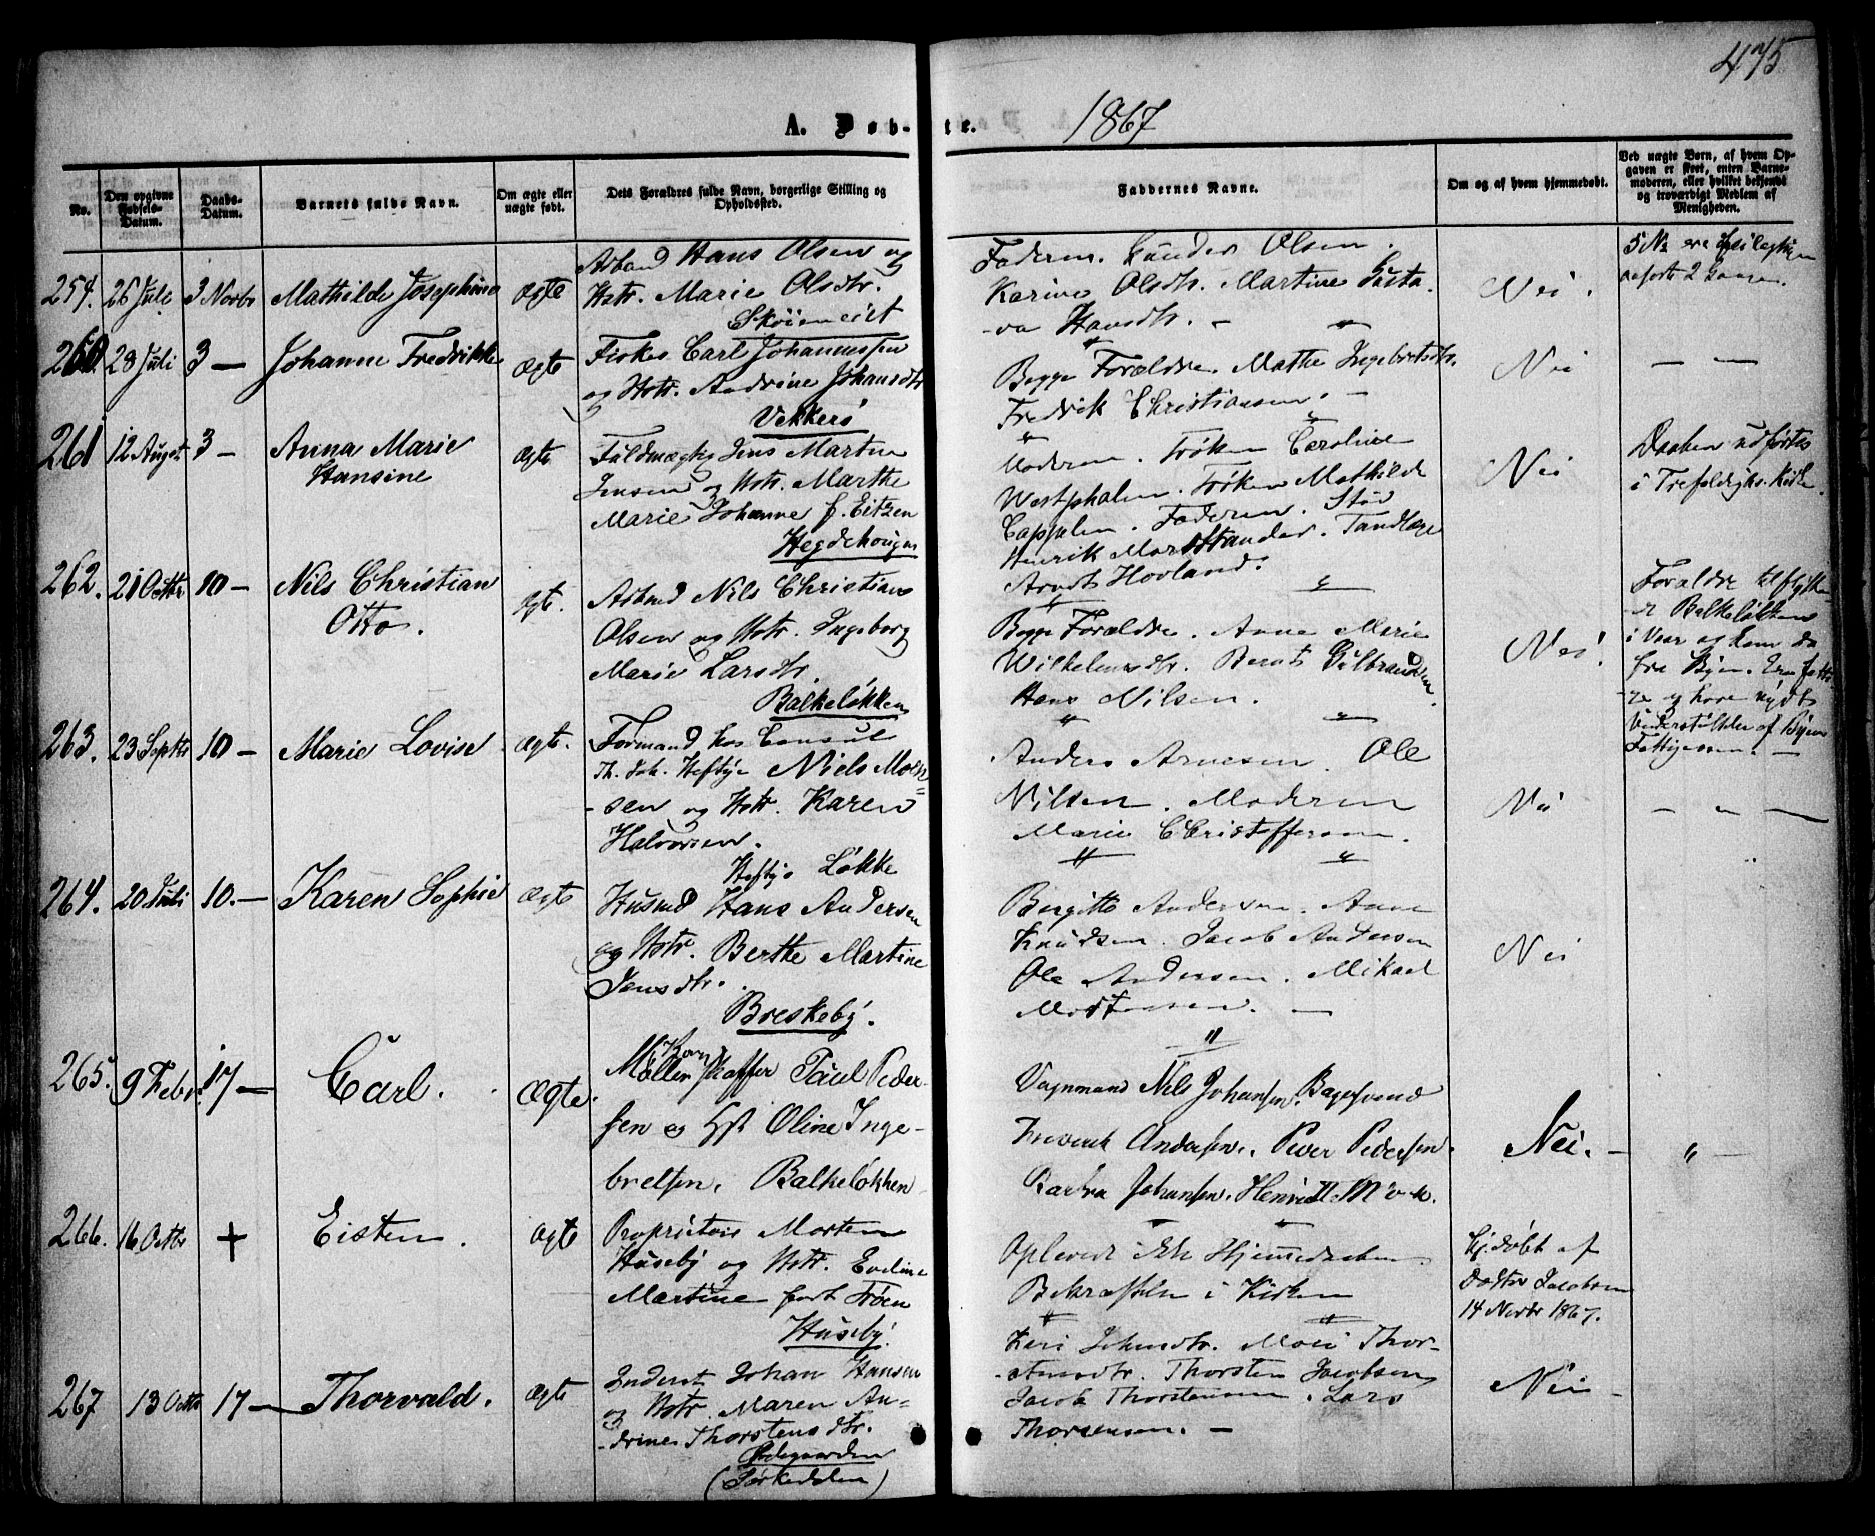 475
A. Døb-te.
1867
No.
Den opgivne Fødsels-Datum.
Daabs-Datum.
Barnets fulde Navn.
Om ægte eller uægte født.
Dets Forældres fulde Navn, borgerlige Stilling og Opholdssted.
Faddernes Navne.
Om og af hvem hjemmedøbt.
Ved uægte Børn, af hvem Opgaven er skeet, enten Barnemoderen, eller hvilket bekjendt og troværdigt Medlem af Menigheden.
254. 26 Juli 3 Novbr Mathilde Josephine ægte
Arbmd Hans Olsen og
Hstr. Marie Olsdtr.
Skøieneiet
Faderen. Gunder Olsen.
Karine Olsdtr. Martine Gusta-
va Hansdtr. –
Nei.
260. 28 Juli 3 — Johanne Fredrikke Ægte
Fisker Carl Johannessen
og Hstr. Andrine Johansdtr
Vækkerø
Begge Forældre. Mathe Ingebretsdtr.
Fredrik Christiansen. –
Nei
— —
261 12 August 3 — Anna Marie
Hansine
ægte
Fuldmægtig Jens Martin
Jensen og Hstr. Marthe
Marie Johanne f. Eitzen
Hegdehougen
Moderen. Frøken Caroline
Westphalen. Frøken Mathilde
Cappelen. Faderen. Stud
Henrik Marstrander. Tandlæge
Arndt Hovland.
Nei
Daaben udførtes
i Trefoldighs. Kirke.
262. 21 Octbr 10 — Nils Christian
Otto.
Ægte.
Arbmd Nils Christian
Olsen og Hstr. Ingeborg
Marie Larsdtr.
Balkeløkken
Begge Forældre. Anne Marie
Wilhelmsdtr. Bernt Gulbrandsen
Hans Nilsen.
Nei.
Forældre tilflytte-
de Balkeløkken
i Vaar og kom da
fra Byen. Ere fatti-
ge og have nydt
Understøttelse af Byens
Fattigvæsen. —
263. 23 Septbr 10 — Marie Lovise ægte.
Formand hos Consul
Th. Joh. Heftye Niels Moen-
sen og Hstr. Karen
Halvorsen.
Heftye Løkke
Anders Arnesen. Ole
Nilsen. Moderen
Marie Christoffersen.
Nei
— " —
264. 20 Juli 10. — Karen Sophie Ægte
Husmd Hans Andersen
og Hstr. Berthe Martine
Jensdtr.
Breskeby.
Birgitte Andersen. Anne
Knudsen. Jacob Andersen
Ole Andersen. Mikael
Mortensen. —
Nei
265. 9 Febr. 17 — Carl. Ægte.
Møller Paul Peder-
sen og Hst Oline Inge-
bretsen. Balkeløkken
Vognmand Nils Johansen. Bagersvend
Frederik Andersen. Peder Pedersen.
Barbra Johansen.
Nei. — " —
266. 16 Octbr + Eisten. Ægte
Proprietær Morten
Huseby og Hstr. Eveline
Martine født Frøen
Huseby.
Oplevede ikke Hjemmedaabens
Bekræftelse i Kirken
Hj. døbt af
Doktor Jacobsen
14 Novbr 1867.
267 13 Octbr 17 — Thorvald. Ægte
Inderst Johan Hansen
og Hstr. Maren An-
drine Thorstensdtr.
Ødegaarden
(Sørkedalen)
Kari Johnsdtr. Mari Thor-
stensdtr. Thorsten Jacobsen
Jacob Thorstensen. Lars
Thorstensen. —
Nei —